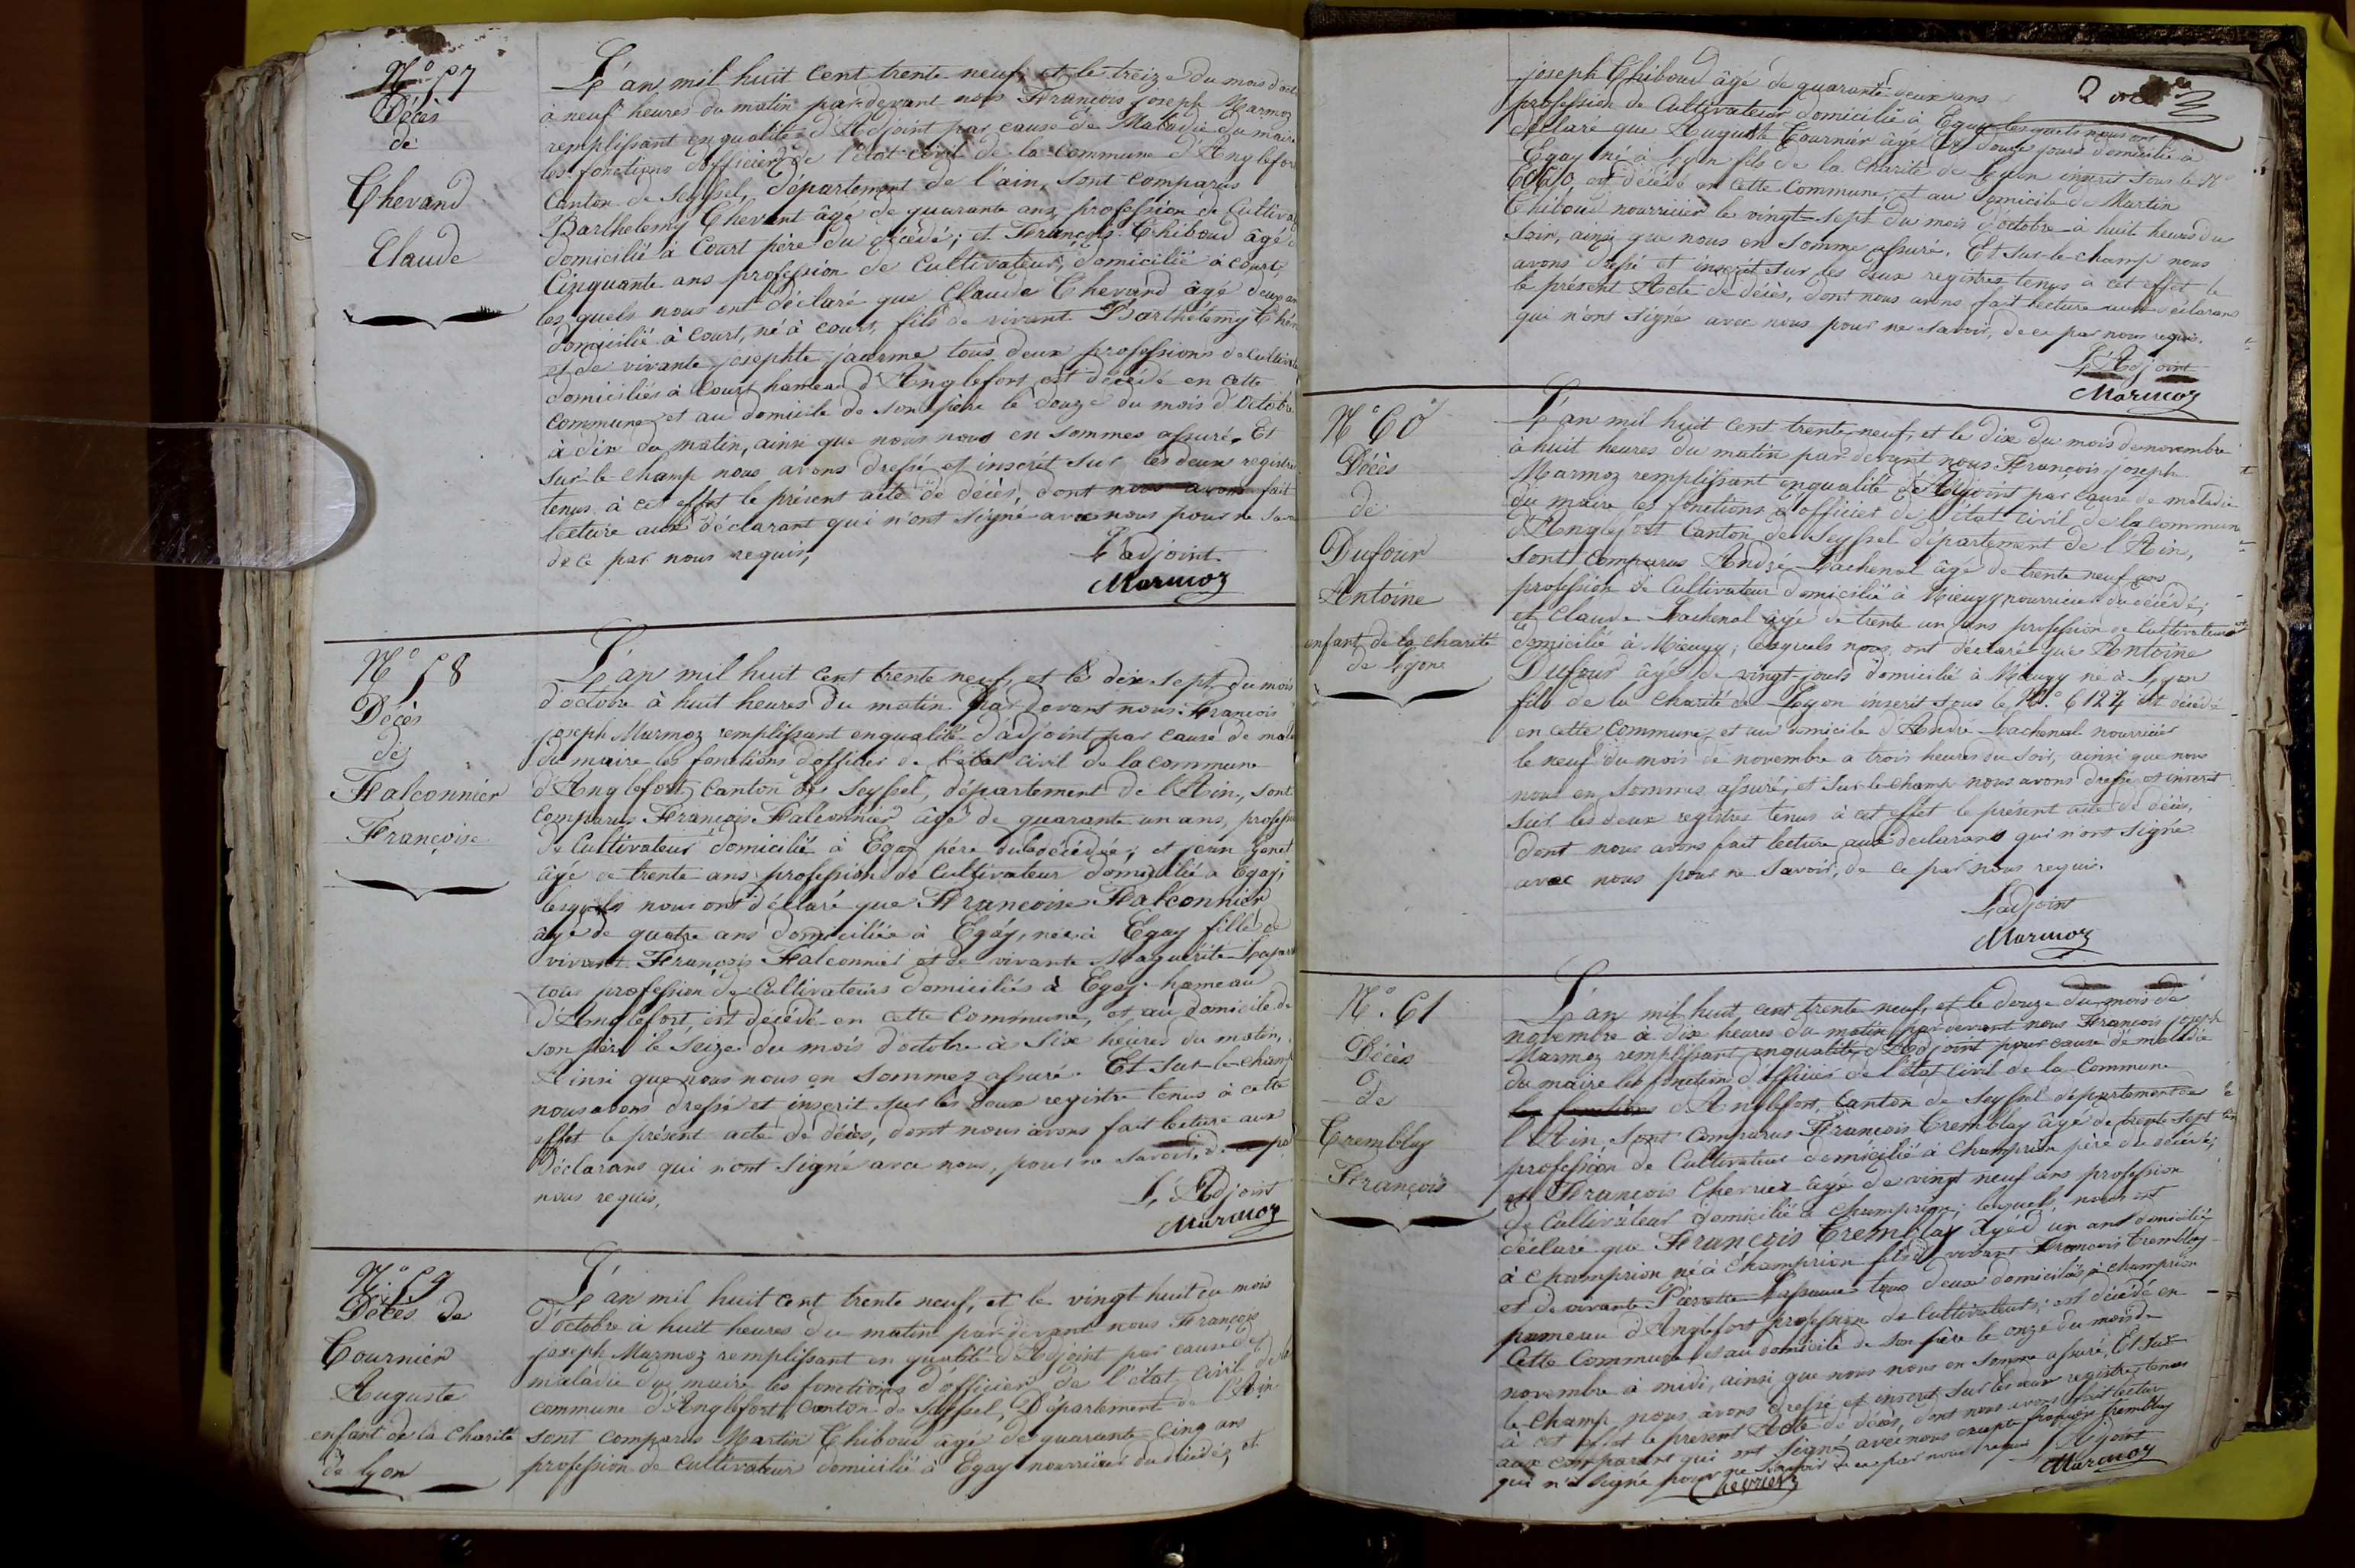 N° 57
Décès
de
Chevand
Claude
L'an mil huit cent trente-neuf, et le treize du mois d'oct
à neuf heures du matin par-devant nous François joseph Marmoz
remplissant en qualité d'Adjoint par cause de Maladie du maire
les fonctions d'officier de l'état civil de la commune d'Anglefort
Canton de Seyssel, département de l'ain, sont comparus
Barthelemy Chevant âgé de quarante ans profession de Cultiva
domicilié à Court père du décédé; et François Thiboud âgé d
Cinquante ans profession de Cultivateur, domicilié à court,
les quels nous ont déclaré que Claude Chevand âgé deux an
domicilié à court, né à court, fils de vivant Barthélemy Chev
et de vivante josephte jacerme tous deux professions de cultivat
domiciliés à Court hameau d'Anglefort est décédé en cette
commune et au domicile de son père le douze du mois d'octobre
à dix du matin, ainsi que nous nous en sommes assuré. Et
sur-le-champ nous avons dressé et inscrit sur les deux registre
tenus à cet effet le présent acte de décès, dont nous avons fait
lecture aux déclarant qui n'ont signé avec nous pour ne savo
de ce par nous requis,
L'adjoint
Marmoz
N° 58
Décès
de
Falconnier
Françoise
L'an mil huit cent trente neuf, et le dix-sept du mois
d'octobre à huit heures du matin par devant nous François
joseph Marmoz remplissant en qualité d'adjoint par cause de mala
du maire les fonctions d'officier de l'état civil de la commune
d'Anglefort Canton de Seyssel, département de l'Ain, sont
comparus François Falconnier âgé de quarante un ans, profess
de Cultivateur domicilié à Egay père de la décédée; et jean
âgé de trente ans profession de Cultivateur domicilié à Egay;
lesquels nous ont déclaré que Françoise Falconnier
âgé de quatre ans domiciliée à Egay, née à Egay fille de
vivant François Falconnier et de vivante Maguérite
tous profession de Cultivateurs domiciliés à Egay hameau
d'Anglefort, est décédé en cette Commune, et au domicile de
son père le Seize du mois d'octobre à Six heures du matin,
Ainsi que nous nous en sommez assuré. Et sur-le-champ
nous avons dressé et inscrit sur les deux registre tenus à cette
effet le présent acte de décès, dont nous avons fait lecture aux
Déclarans qui n'ont signé avec nous, pour ne savoir, de ce pa
nous requis,
L'Adjoint
Marmoz
N° 59
Décès de
Tournier
Auguste
enfant de la Charité
de lyon
L'an mil huit cent trente neuf, et le vingt-huit du mois
d'octobre à huit heures du matin par-devant nous François
joseph Marmoz remplissant en qualité d'Adjoint par cause de
maladie du maire les fonctions d'officier de l'état civil de la
commune d'Anglefort Canton de Seyssel, Département de l'Ain
sont comparus Martin Thiboud âgé de quarante-cinq ans
profession de cultivateur domicilié à Egay nourricier du décédé, et
joseph Thiboud âgé de quarante-deux ans
profession de Cultivateur domicilié à Egay lesquels nous ont
déclaré que Auguste Tournier âgé de douze jours domicilié à
Egay né à Lyon fils de la Charité de Lyon inscrit sous le N°
est décédé en cette commune, et au domicile de Martin
Thiboud nourricier le vingt-sept du mois d'octobre à huit heures du
soir, ainsi que nous en somme assuré. Et sur-le-champ nous
avons dressé et inscrit sur les deux registres tenus à cet effet le
le présent Acte de décès, dont nous avons fait lecture aux déclarans
qui n'ont signé avec nous pour ne savoir, de ce par nous requis.
L'Adjoint
Marmoz
N° 60
Décès
de
Dufour
Antoine
enfant de la charité
de lyon
L'an mil huit cent trente-neuf, et le dix du mois de novembre
à huit heures du matin par devant nous François joseph
Marmoz remplissant en qualité d'Adjoint par cause de maladie
du maire les fonctions d'officier de l'état civil de la commune
d'Anglefort Canton de Seyssel département de l'Ain,
sont comparus André Lachenal âgé de trente neuf ans
profession de Cultivateur domicilié à Mieugy nourricier du décédé;
et Claude Lachenal âgé de trente un ans profession de Cultivateur
domicilié à Mieugy; lesquels nous ont déclaré que Antoine
Dufour âgé de vingt-jours domicilié à Mieugy né à Lyon
fils de la Charité de Lyon inscrit sous le N° 6124 est décédé
en cette commune, et au domicile d'André Lachenal nourricier
le neuf du mois de novembre à trois heures du soir, ainsi que nous
nous en sommes assuré, et sur-le-champ nous avons dressé et inscrit
sur les deux registres tenus à cet effet le présent acte de décès,
dont nous avons fait lecture aux declarans qui n'ont signé
avec nous pour ne savoir, de ce par nous requis.
L'adjoint
Marmoz
N° 61
Décès
de
Tremblay
François
L'an mil huit cent trente neuf, et le douze du mois de
novembre à dix heures du matin par devant nous François joseph
Marmoz remplissant en qualité d'Adjoint pour cause de maladie
du maire les fonction d'officier de l'état civil de la Commune
les fonctions d'Anglefort, Canton de Seyssel département de
l'Ain, sont comparus François Tremblay âgé de trente sept an
profession de Cultivateur domicilié à Champrion père du décédé,
et François Chevrier âgé de vingt neuf ans profession
de Cultivateur domicilié à champrion; lesquels nous ont
déclaré que François Tremblay âgé d'un ans domicilié
à champrion né à Champrion fils de vivant François Tremblay
et de vivante Pierrette tous deux domiciliés à champrion
hameau d'Anglefort profession de Cultivateurs; est décédé en
Cette Commune et au domicile de son père le onze du mois de
novembre à midi, ainsi que nous nous en somme assuré, Et sur
le-champ nous avons dressé et inscrit sur les deux registres tenus
à cet effet le présent Acte de décès, dont nous avons fait lecture
aux comparant qui ont signé avec nous excepté françois tremblay
qui n'a signé pour ne savoir de ce par nous requis
L'Adjoint
Chevrier
Marmoz